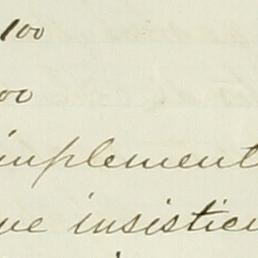 100
00
implement
ve insistice